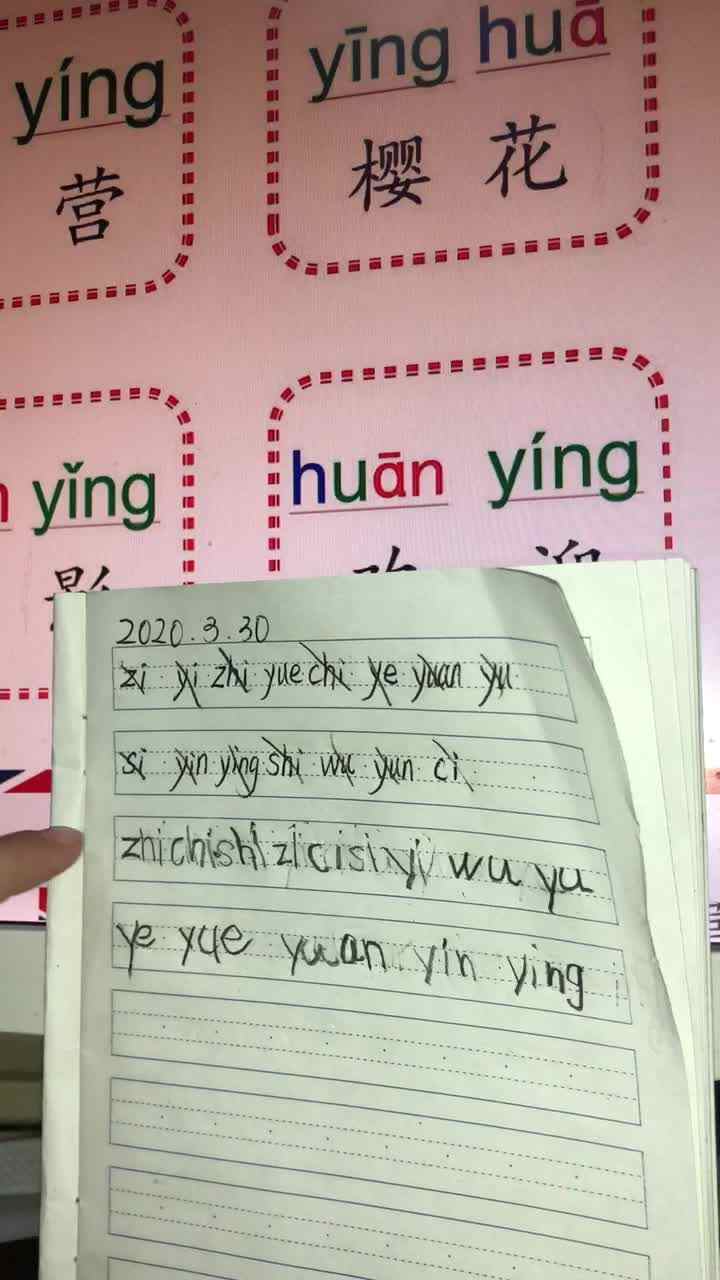 yíng yīng huā
营 樱 花
yǐng huān yíng
影 欢 迎
2020.3.30
zi yi zhi yue chi ye yuan yu
si yin ying shi wu yun ci
zhi chi shi zi ci si yi wu yu
ye yue yuan yin ying